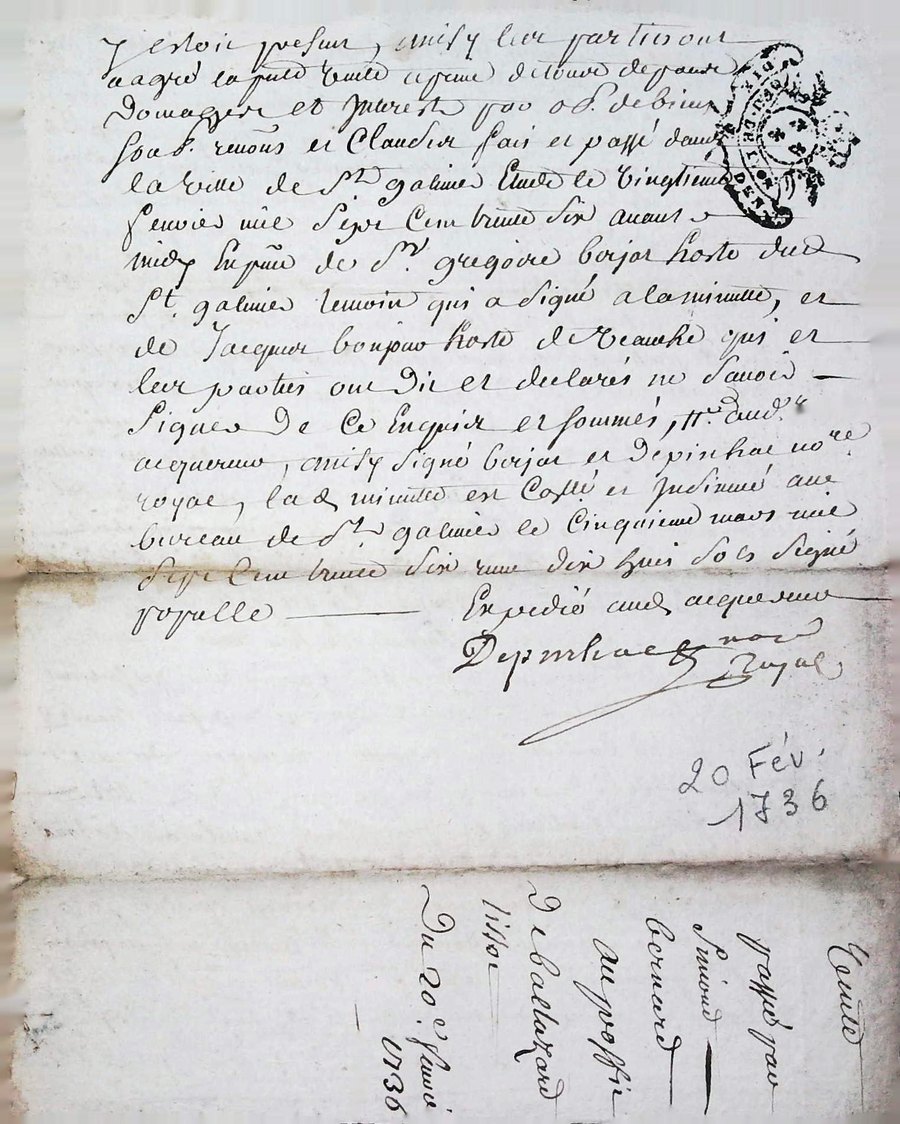 y estoit presant, ainsy leur parties ont
a agré la pnte vente a peine de tous depans
Domages et Interest par ob. de biens
soub. renons et Clauses fait et passé dans
la ville de St galmier Etude le vingtieme
fevrier mil sept cent trente six avant
midy En pnce de Sr. gregoire borjat hoste dud
St. galmier temoin qui a signé a la minutte, et
de Jacques bonjour hoste de qui et
leur parties ont dit et declarés ne savoir
signer De Ce Enquis et sommés, aud.
acquereur, ainsy signé borjat et Depinhac nore.
royal, lad minutte est Collé et Insinué au
bureau de St galmier le cinquieme mars mil
sept cent trente six reçu dix huit sols signé
populle
Expedié aud acquereur
Depinhac nore
Royal
20 Fév.
1736
Vente
passé par
Simond
bernard
au proffit
De baltazard
tissot
Du 20e. fevrier
1736